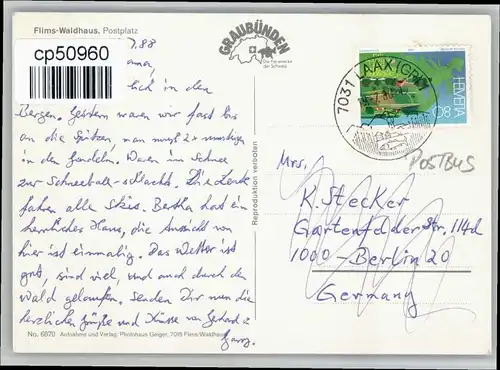 Flims-Waldhaus, Postplatz
cp50960
7.88
lich in den
Bergen. Gestern waren wir fast bis
an die Spitzen, man muß 2x umsteigen
in den Gondeln. Waren im Schnee
zur Schneeball-schlacht. Die Leute
fahren alle Skis. Bertha hat ein
herrliches Haus, die Aussicht von
hier ist einmalig. Das Wetter ist
gut, sind viel, und auch durch den
Wald gelaufen. Senden Dir nun die
herzlichen Grüße und Küsse von Gerhard &
No. 6870 Aufnahme und Verlag: Photohaus Geiger, 7018 Flims-Waldhaus
GRAUBÜNDEN
Die Ferienecke
der Schweiz
Reproduktion verboten
7031 LAAX (GR) 1
HELVETIA
80
POSTBUS
Mrs.
K. Stecker
Gartenfelder Str. 114d
1000-Berlin 20
Germany